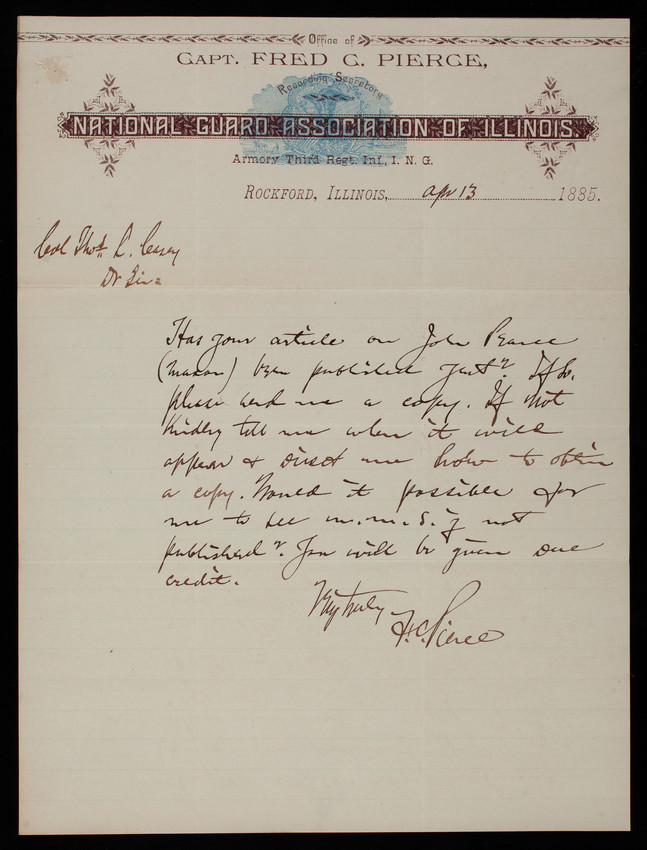 Office of
CAPT. FRED C. PIERCE,
Recording Secretary
NATIONAL GUARD ASSOCIATION OF ILLINOIS.
Armory Third Regt. Inf., I. N. G.
ROCKFORD, ILLINOIS, Apr 13 1885.
Col Thos L. Casey
Dr Sir =
Has your article on John Pearce
(mason) been published yet? If so,
please send me a copy. If not
Kindly tell me when it will
appear & direct me how to obtain
a copy. Would it possible for
me to see m.m.S. if not
published? You will be given due
credit.
Very truly
F.C. Pierce